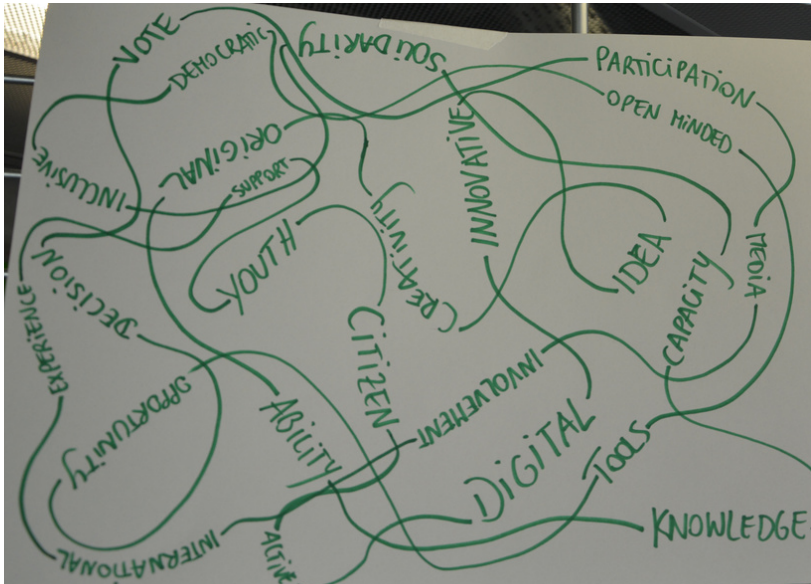 VOTE
DEMOCRATIC
SOLIDARITY
PARTICIPATION
OPEN MINDED
INCLUSIVE
ORIGINAL
SUPPORT
CREATIVITY
INNOVATIVE
IDEA
CAPACITY
MEDIA
DECISION
YOUTH
EXPERIENCE
CITIZEN
OPPORTUNITY
ABILITY
INVOLVEMENT
DIGITAL
TOOLS
KNOWLEDGE
INTERNATIONAL
ACTIVE